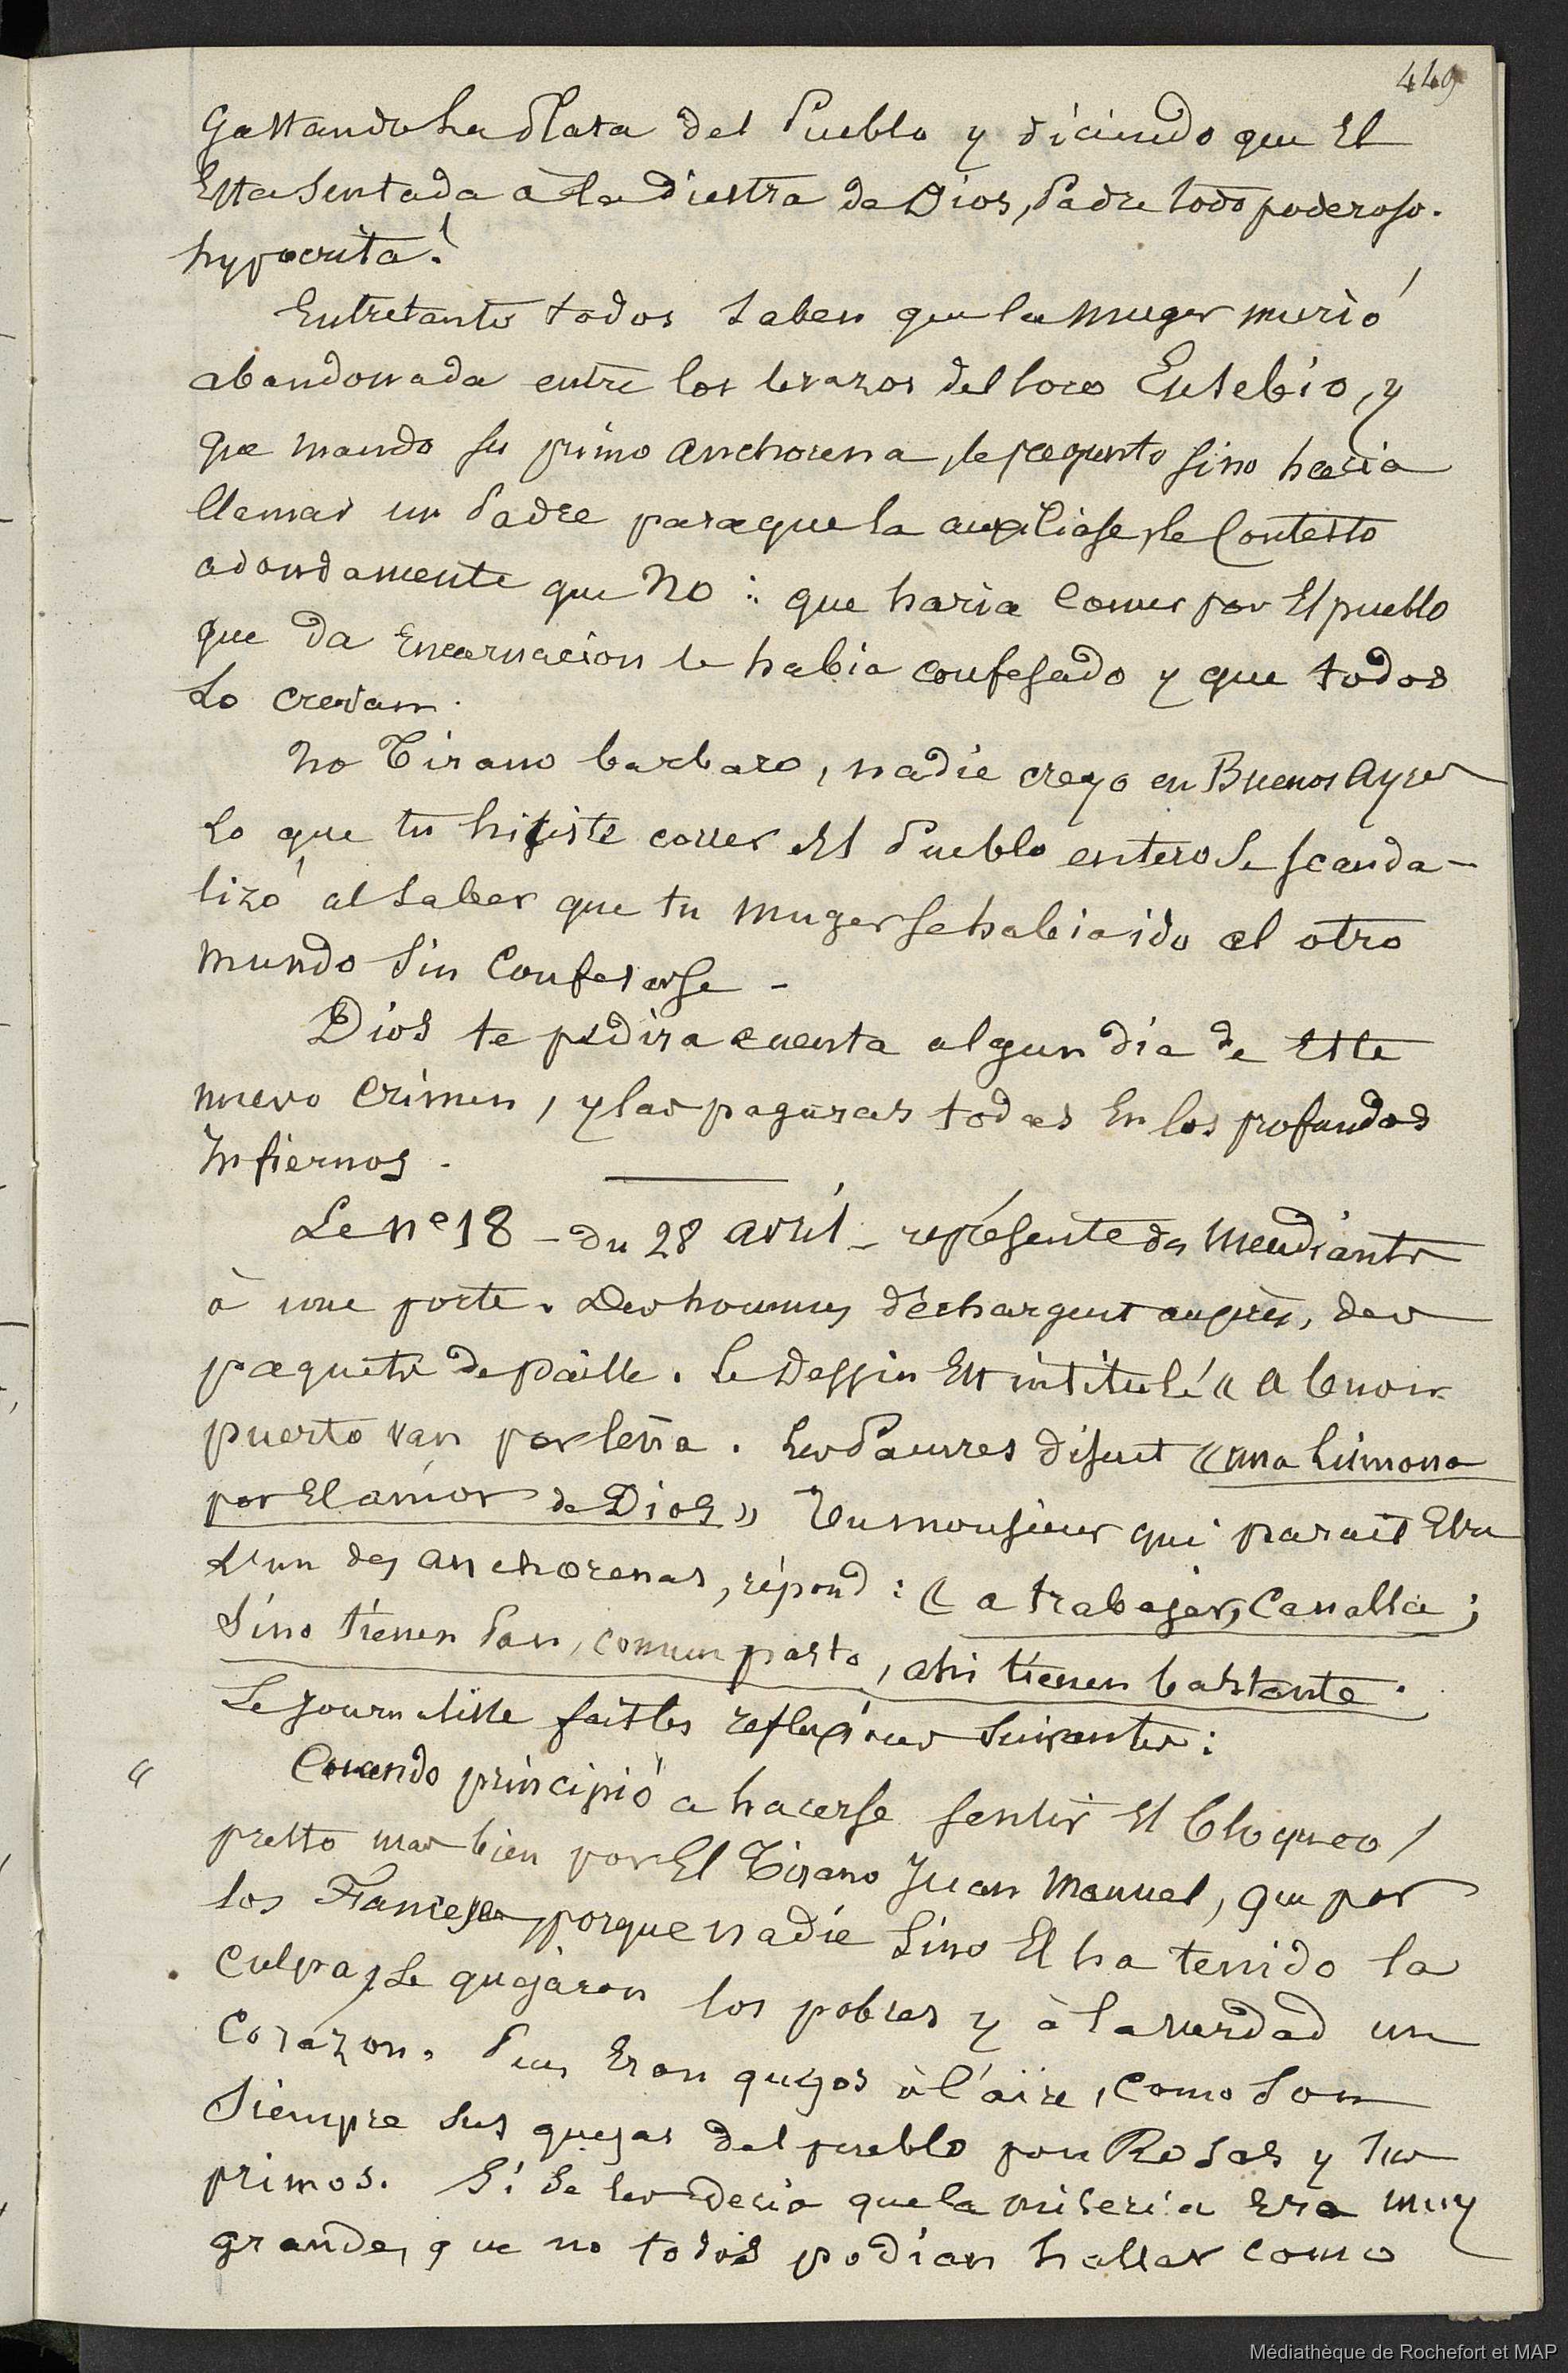 449
Gastando La Plata del Pueblo y diciendo que El
Esta Sentada à la diestra de Dios, Padre todo poderoso.
hypocrita!
Entretanto todos saben que la muger murió
abandonada entre los brazos del loco Eusebio, y
que mando su primo anchorena, le pregunto sino hacia
llamar un Padre para que la auxiliase, le Contesto
adondamente que No: que haria Correr por El pueblo
que Da Encarnacion se habia confesado y que todos
Lo creian.
No Tirano barbaro, nadie creyo en Buenos Ayres
Lo que tu hiciste correr El Pueblo entero Se scanda-
lizó al saber que tu muger se habia ido al otro
mundo Sin Confesarse -
Dios te pedira cuenta algun dia de Este
nuevo Crimen, y las pagaras todas En los profundos
Infiernos.
Le Nº 18 - du 28 avril - représente des Mendiants
à une porte. Des hommes déchargent auprès, des
paquets de paille. Le Dessin Est intitulé « A buen
puerto van por leña. Les Pauvres disent « una limona
por El amor de Dios » Un monsieur qui parait Etre
L'un des anchorenas, répond : « a trabajar, Canalla ;
Sino tienen Pan, coman pasto, ahi tienen bastante.
Le journaliste fait les reflexions Suivantes :
« Cuando principió a hacerse sentir El bloqueo /
presto mas bien por El Tirano Juan Manuel, que por
los Franceses, porque nadie Sino El ha tenido la
Culpa / Se quejaron los pobres y à la verdad un
Corazon. Pues Eran quejos à l'aire, Como Son
Siempre Sus quejas del pueblo pou Rosas y Sus
primos. Si Se les decia que la miseria Era muy
grande, que no todos podian hallar como